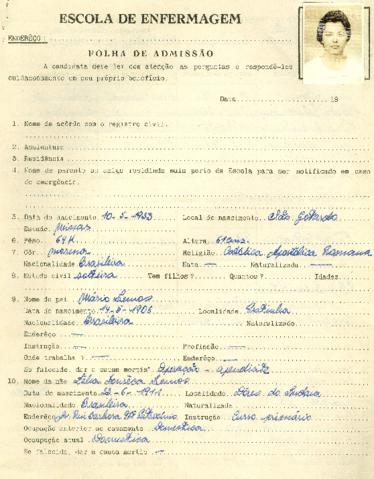 ESCOLA DE ENFERMAGEM
ENDERÊÇO:
FOLHA DE ADMISSÃO
A candidata deve ler com atenção as perguntas e respondê-las
cuidadosamente em seu próprio benefício.
Data 19
1. Nome de acôrdo com o registro civil.
2. Assinatura
3. Residência
4. Nome de parente ou amigo residindo mais perto da Escola para ser notificado em caso
de emergência.
5. Data do nascimento 10-5-1933 Local do nascimento São Gotardo
Estado Minas
6. Pêso. 54 K. Altura.
7. Côr. morena Religião. Católica Apostólica Romana
Nacionalidade Brasileira Nata — Naturalizada —
8. Estado civil solteira Tem filhos? Quantos? Idades.
9. Nome do pai Mário Lemos
Data do nascimento Localidade.
Nacionalidade. Brasileira Naturalizado.
Endereço —
Instrução — Profissão. —
Onde trabalha? — Endereço: —
Se falecido, dar a causa mortis Operação - apendicite
10. Nome da mãe Fonsêca Lemos
Data do nascimento Localidade.
Nacionalidade. Brasileira Naturalizada
Enderêço Instrução Curso primário
Ocupação anterior ao casamento Doméstica
Ocupação atual Doméstica
Se falecida, dar a causa mortis —